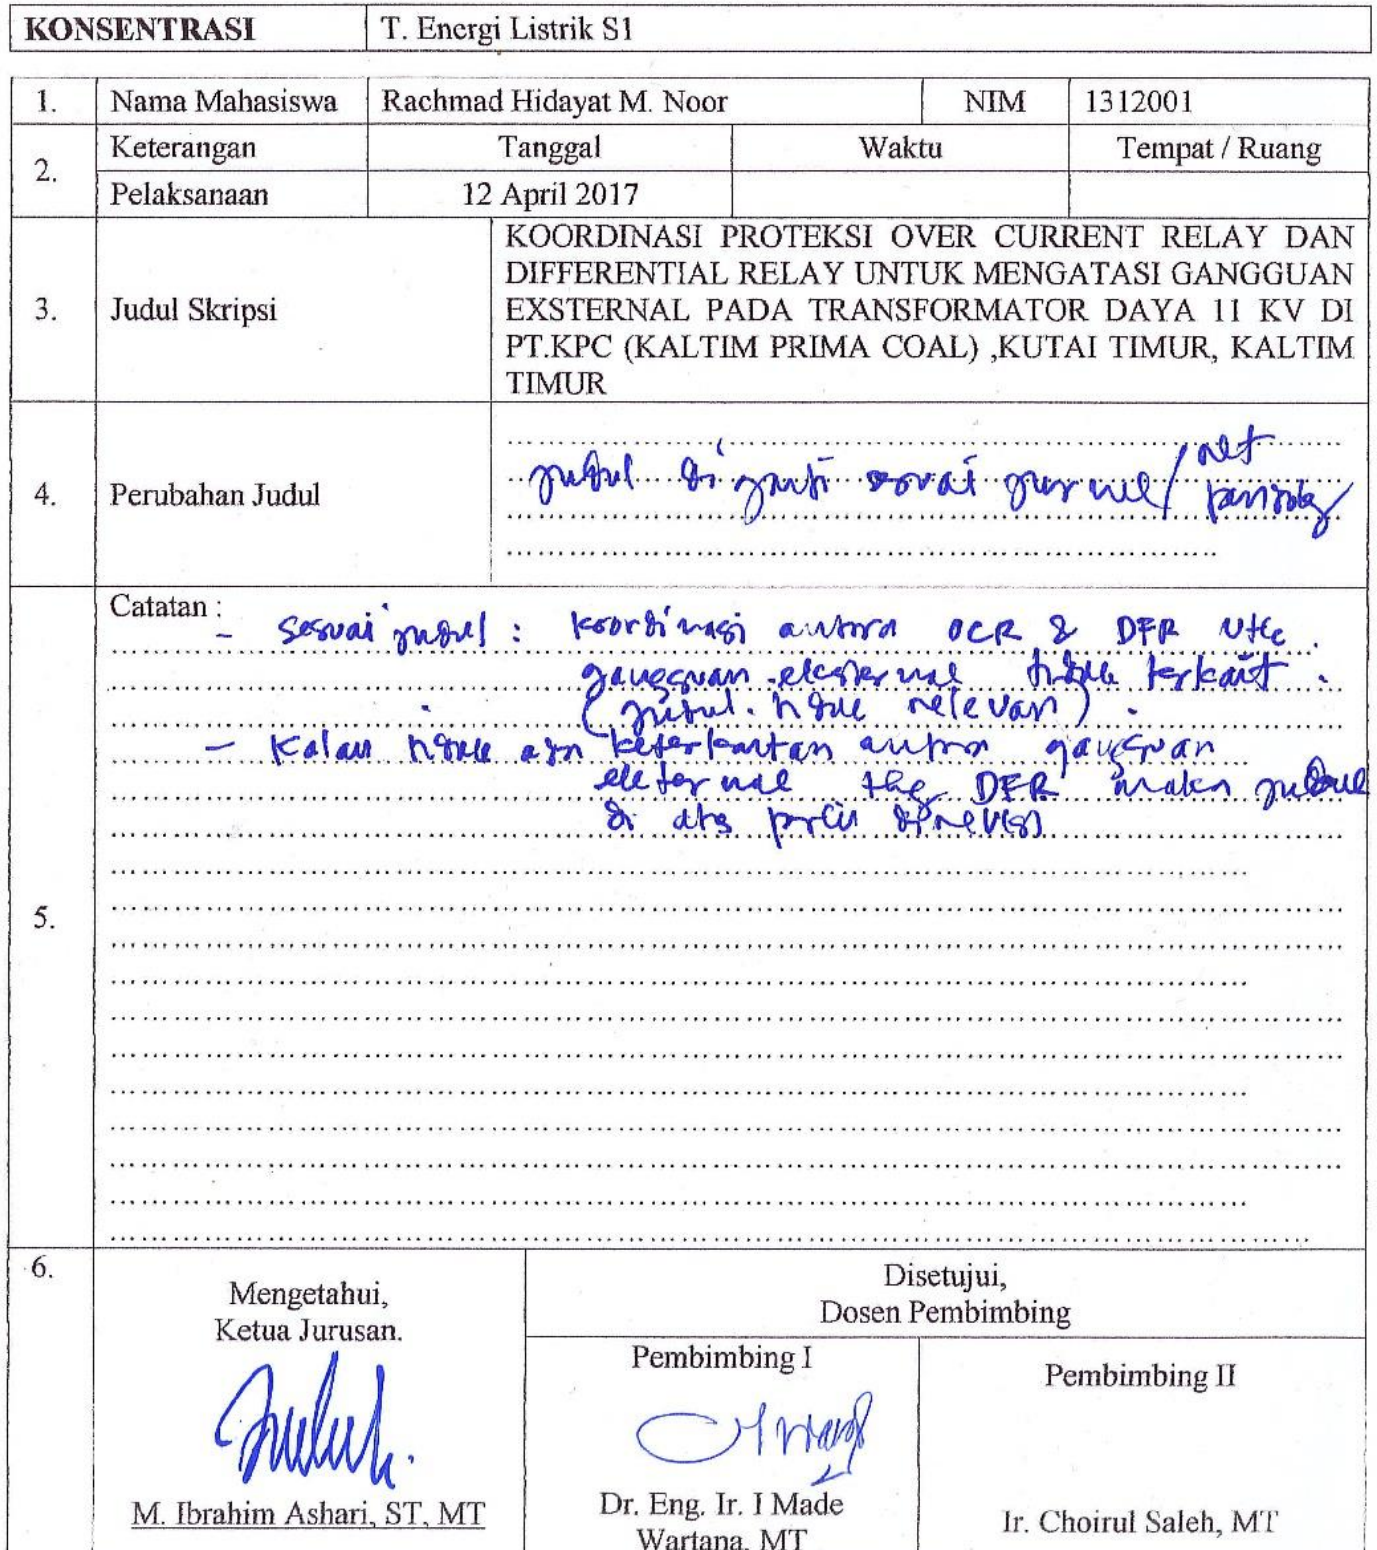 KONSENTRASI T. Energi Listrik S1
1. Nama Mahasiswa Rachmad Hidayat M. Noor NIM 1312001
2. Keterangan Tanggal Waktu Tempat / Ruang
Pelaksanaan 12 April 2017
3. Judul Skripsi
KOORDINASI PROTEKSI OVER CURRENT RELAY DAN
DIFFERENTIAL RELAY UNTUK MENGATASI GANGGUAN
EXSTERNAL PADA TRANSFORMATOR DAYA 11 KV DI
PT.KPC (KALTIM PRIMA COAL) ,KUTAI TIMUR, KALTIM
TIMUR
4. Perubahan Judul
judul di ganti sesuai
5. Catatan :
- sesuai judul : koordinasi antara OCR & DFR utk
gangguan eksternal tidak terkait.
(judul tidak relevan).
- Kalau tidak ada keterkaitan antara gangguan
eksternal DFR maka judul
di atas perlu direvisi
6. Mengetahui,
Ketua Jurusan.
M. Ibrahim Ashari, ST, MT
Disetujui,
Dosen Pembimbing
Pembimbing I
Dr. Eng. Ir. I Made
Wartana, MT
Pembimbing II
Ir. Choirul Saleh, MT